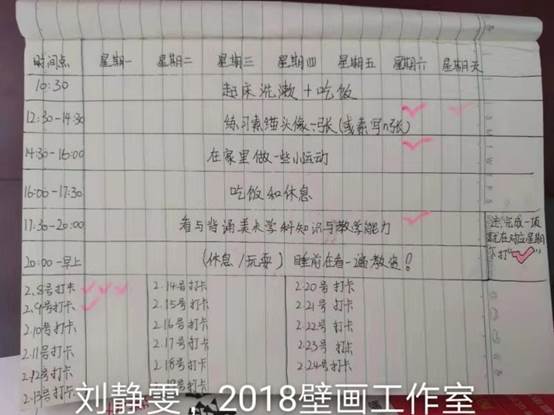 时间点 星期一 星期二 星期三 星期四 星期五 星期六 星期天
10:30 起床洗漱+吃饭
12:30-14:30 练习素描头像一张(或素写n张)
14:30-16:00 在家里做一些小运动
16:00-17:30 吃饭和休息
17:30-20:00 看与背诵美术学科知识与教学能力
注:完成一项
就在对应星期
下打“✓”
20:00-早上 (休息/玩耍) 睡前在看一遍教资!
2.8号打卡 2.14号打卡 2.20号打卡
2.9号打卡 2.15号打卡 2.21号打卡
2.10号打卡 2.16号打卡 2.22号打卡
2.11号打卡 2.17号打卡 2.23号打卡
2.12号打卡 2.18号打卡 2.24号打卡
2.13号打卡 号打卡
刘静雯，2018壁画工作室